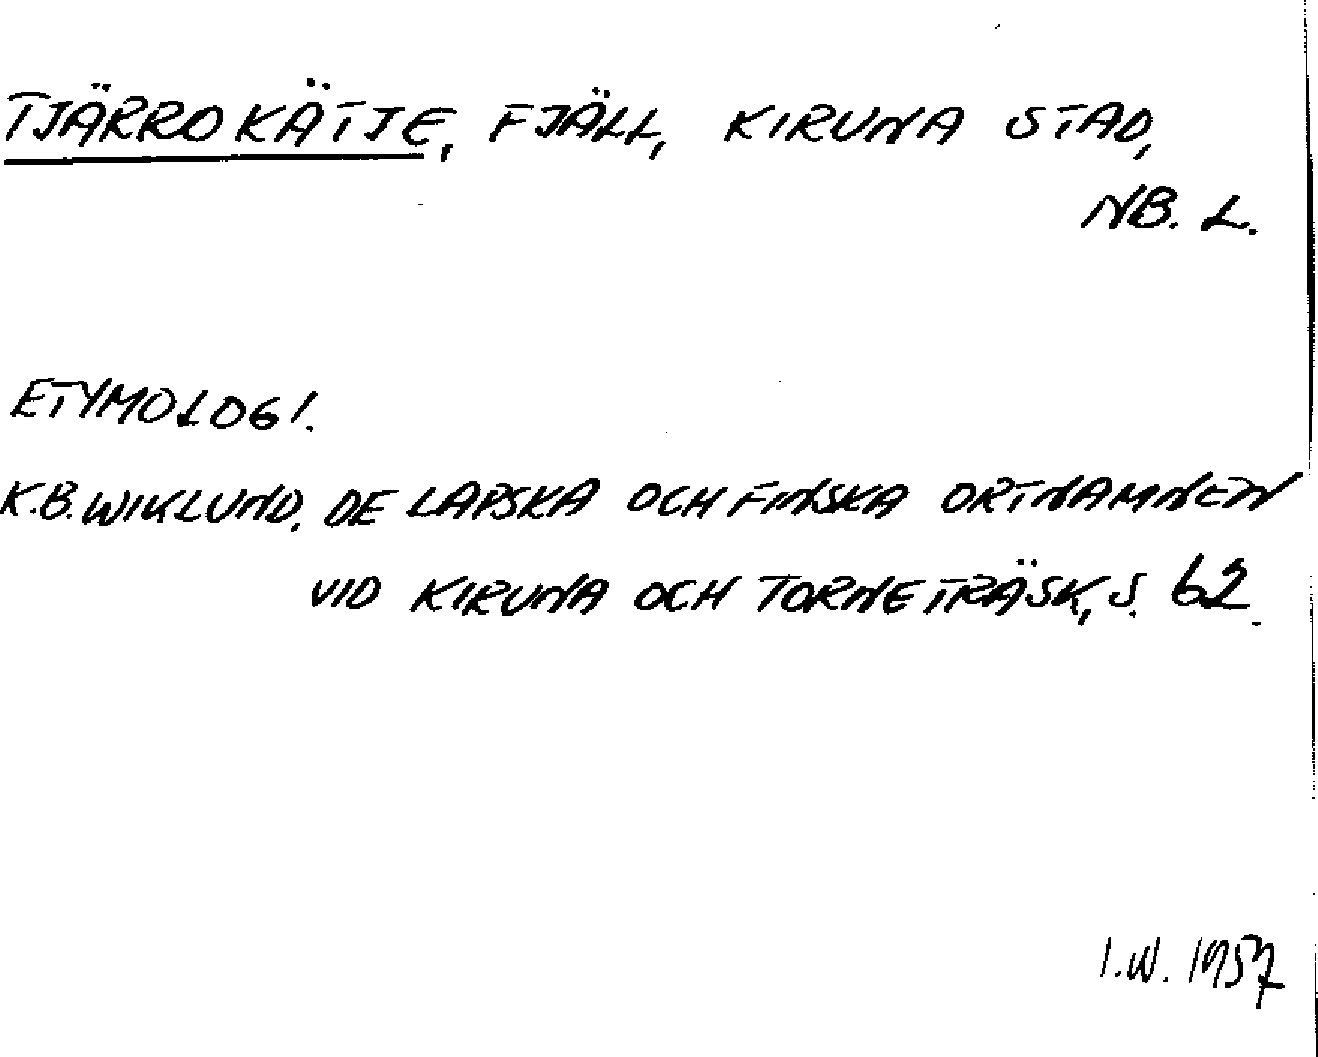 TJÄRROKÄTJE, FJÄLL, KIRUNA STAD,
NB. L.
ETYMOLOGI.
K.B. WIKLUND, DE LAPSKA OCH FINSKA ORTNAMNEN
VID KIRUNA OCH TORNETRÄSK, S. 62.
I.W. 1957